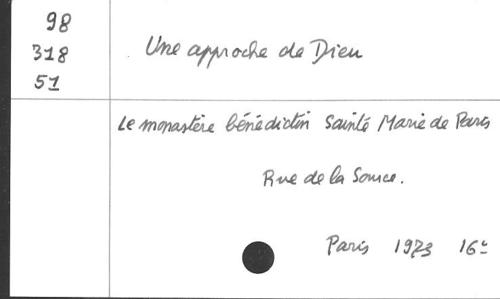 98
318
51
Une approche de Dieu
Le monastère bénédictin Sainte Marie de Paris
Rue de la Source.
Paris 1973 16°